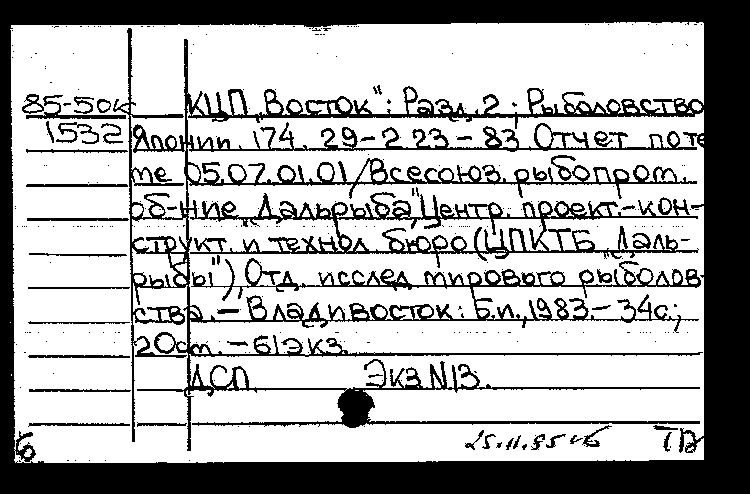 85-50к КЦП „Восток": Разд. 2; Рыболовство
1532 Японии. 174. 29-2 23-83 Отчет по те
ме 05.07.01.01/Всесоюз. рыбопром.
об-ние „Дальрыба", Центр. проект.-кон-
структ. и технол. бюро (ЦПКТБ „Даль-
рыбы"), Отд. исслед мирового рыболов-
ства.-Владивосток: Б.и., 1983.-34с.;
20см.-61экз.
ДСП. Экз N13.
б 25.11.85 ТВ